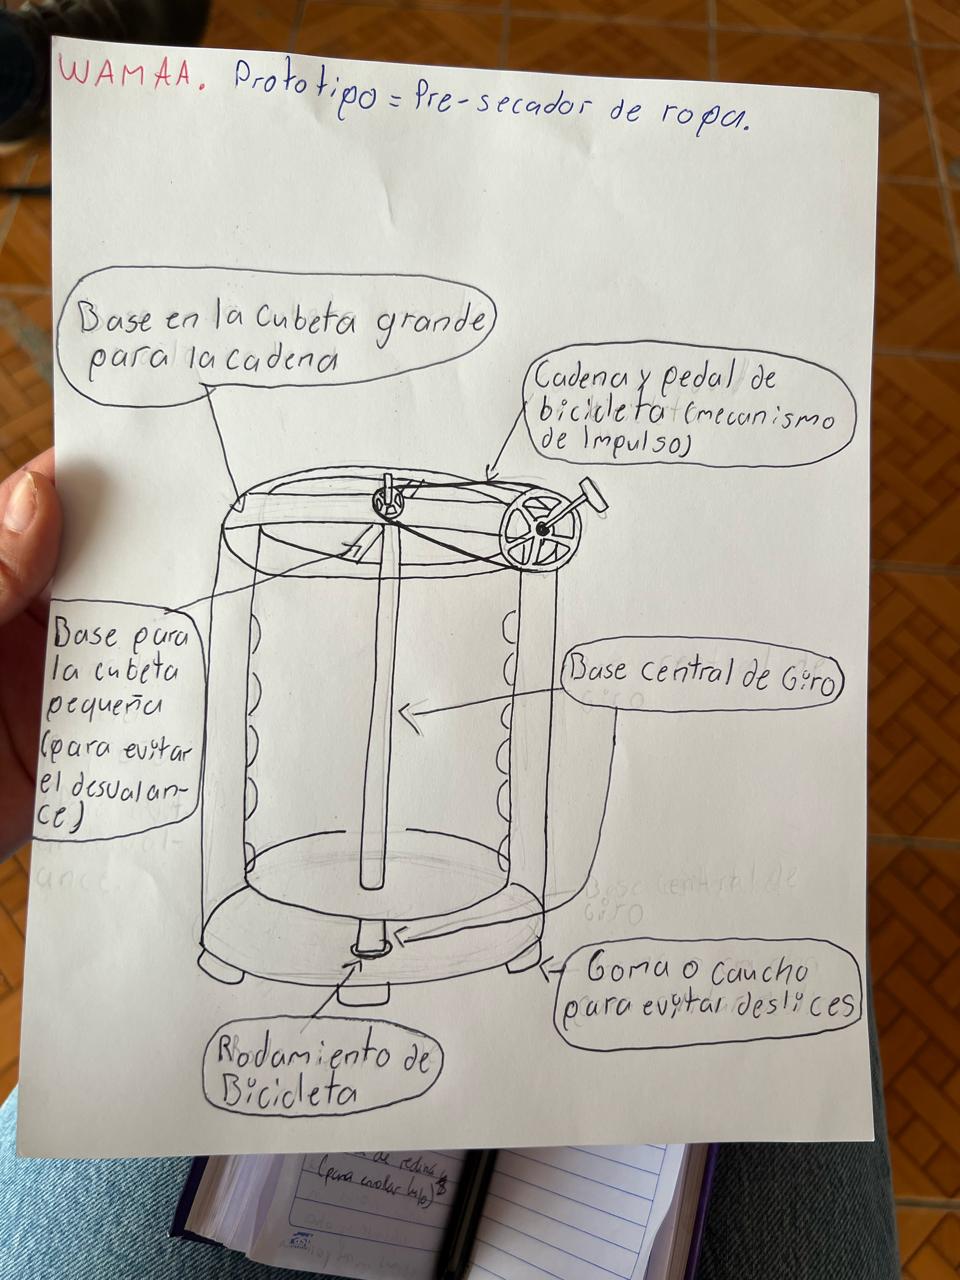 WAMAA. Prototipo = Pre-secador de ropa.
Base en la Cubeta grande
para la cadena
Cadena y pedal de
bicicleta (mecanismo
de Impulso)
Base para
la cubeta
pequeña
(para evitar
el desvalan-
ce)
Base central de Giro
Goma o Caucho
para evitar deslices
Rodamiento de
Bicicleta
Base central de
Giro
ance.